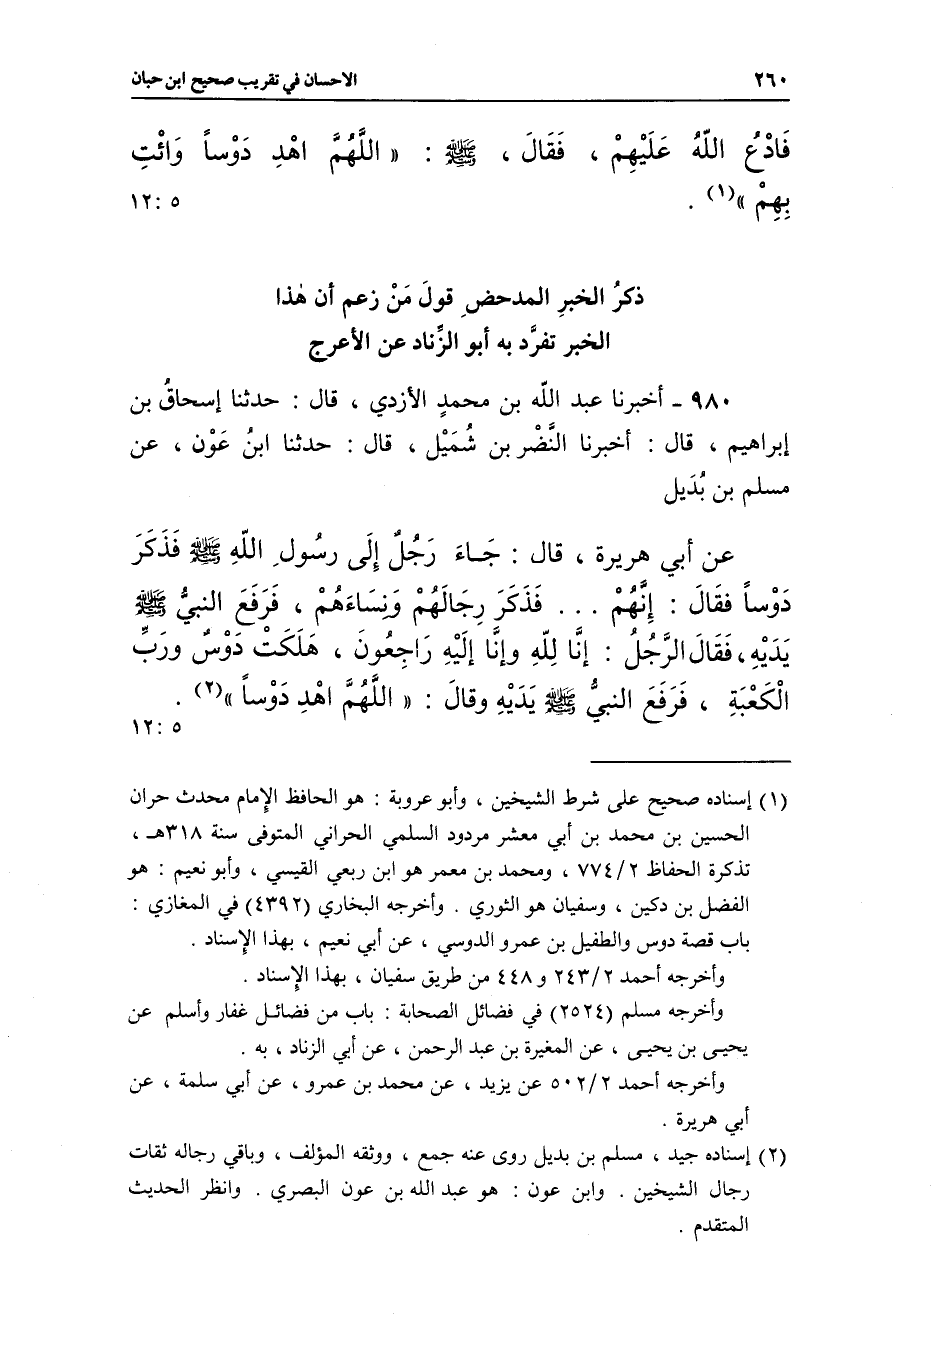 ٢٦٠ الاحسان في تقريب صحيح ابن حبان
فَادْعُ اللّهُ عَلَيْهِمْ ، فَقَالَ ، ﷺ : « اللَّهُمَّ اهْدِ دَوْساً وَائْتِ
بِهِمْ »(١) . ٥ :١٢
ذكرُ الخبرِ المدحضِ قولَ مَنْ زعم أن هٰذا
الخبر تفرَّد به أبو الزِّناد عن الأعرج
٩٨٠ - أخبرنا عبد اللّه بن محمدٍ الأزدي ، قال : حدثنا إسحاقُ بن
إبراهيم ، قال : أخبرنا النَّضْر بن شُمَيْل ، قال : حدثنا ابنُ عَوْن ، عن
مسلم بن بُدَيل
عن أبي هريرة ، قال : جَاءَ رَجُلٌ إِلَى رسُولِ اللّهِ ﷺ فَذَكَرَ
دَوْساً فقَالَ : إِنَّهُمْ ... فَذَكَرَ رِجَالَهُمْ وَنِسَاءَهُمْ ، فَرَفَعَ النبيُّ ﷺ
يَدَيْهِ، فَقَالَ الرَّجُلُ : إنَّا لِلّهِ وإنَّا إلَيْهِ رَاجِعُونَ ، هَلَكَتْ دَوْسٌ ورَبِّ
الْكَعْبَةِ ، فَرَفَعَ النبيُّ ﷺ يَدَيْهِ وقالَ : « اللَّهُمَّ اهْدِ دَوْساً »(٢) .
٥ :١٢
(١) إسناده صحيح على شرط الشيخين ، وأبو عروبة : هو الحافظ الإمام محدث حران
الحسين بن محمد بن أبي معشر مردود السلمي الحراني المتوفى سنة ٣١٨هـ ،
تذكرة الحفاظ ٧٧٤/٢ ، ومحمد بن معمر هو ابن ربعي القيسي ، وأبو نعيم : هو
الفضل بن دكين ، وسفيان هو الثوري . وأخرجه البخاري (٤٣٩٢) في المغازي :
باب قصة دوس والطفيل بن عمرو الدوسي ، عن أبي نعيم ، بهذا الإسناد .
وأخرجه أحمد ٢٤٣/٢ و ٤٤٨ من طريق سفيان ، بهذا الإسناد .
وأخرجه مسلم (٢٥٢٤) في فضائل الصحابة : باب من فضائل غفار وأسلم عن
يحيى بن يحيى ، عن المغيرة بن عبد الرحمن ، عن أبي الزناد ، به .
وأخرجه أحمد ٥٠٢/٢ عن يزيد ، عن محمد بن عمرو ، عن أبي سلمة ، عن
أبي هريرة .
(٢) إسناده جيد ، مسلم بن بديل روى عنه جمع ، ووثقه المؤلف ، وباقي رجاله ثقات
رجال الشيخين . وابن عون : هو عبد الله بن عون البصري . وانظر الحديث
المتقدم .